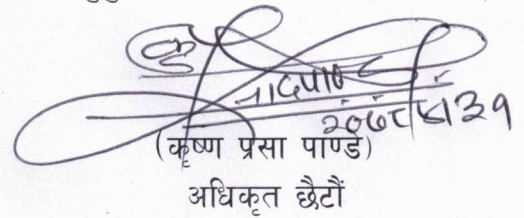 २०७८।५।३१
(कृष्ण प्रसा पाण्डे)
अधिकृत छैटौं